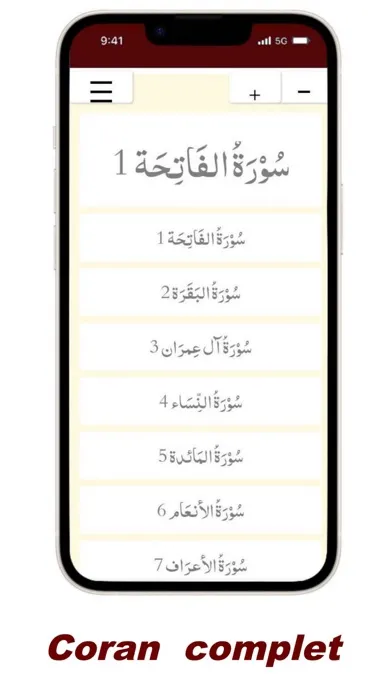 9:41 5G
+ −
سُوْرَةُ الفَاتِحَة 1
سُوْرَةُ الفَاتِحَة 1
سُوْرَةُ البَقَرَة 2
سُوْرَةُ آل عِمرَان 3
سُوْرَةُ النِّسَاء 4
سُوْرَةُ المَائدة 5
سُوْرَةُ الأنعَام 6
سُوْرَةُ الأعرَاف 7
Coran complet